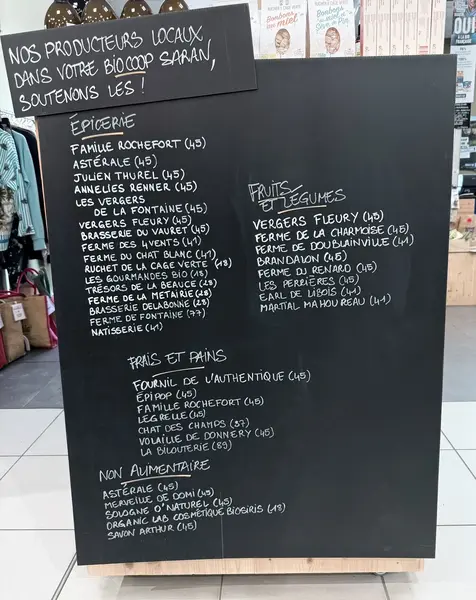 NOS PRODUCTEURS LOCAUX,
DANS VOTRE BIOCOOP SARAN,
SOUTENONS LES !
ÉPICERIE
FAMILLE ROCHEFORT (45)
ASTÉRALE (45)
JULIEN THUREL (45)
ANNELIES RENNER (45)
LES VERGERS
DE LA FONTAINE (45)
VERGERS FLEURY (45)
BRASSERIE DU VAURET (45)
FERME DES 4 VENTS (41)
FERME DU CHAT BLANC (41)
RUCHET DE LA CAGE VERTE (18)
LES GOURMANDES BIO (18)
TRÉSORS DE LA BEAUCE (28)
FERME DE LA METAIRIE (28)
BRASSERIE DELABONNE (28)
FERME DE FONTAINE (77)
NATISSERIE (41)
FRUITS
ET LÉGUMES
VERGERS FLEURY (45)
FERME DE LA CHARMOISE (45)
FERME DE DOUBLAINVILLE (41)
BRANDALON (45)
FERME DU RENARD (45)
LES PERRIÈRES (45)
EARL DE LIBOIS (41)
MARTIAL MAHOUREAU (41)
FRAIS ET PAINS
FOURNIL DE L'AUTHENTIQUE (45)
ÉPIPOP (45)
FAMILLE ROCHEFORT (45)
LEGRELLE (45)
CHAT DES CHAMPS (37)
VOLAILLE DE DONNERY (45)
LA BILOUTERIE (89)
NON ALIMENTAIRE
ASTÉRALE (45)
MERVEILLE DE DOMI (45)
SOLOGNE Ô'NATUREL (45)
ORGANIC LAB COSMÉTIQUE BIOSIRIS (18)
SAVON ARTHUR (45)